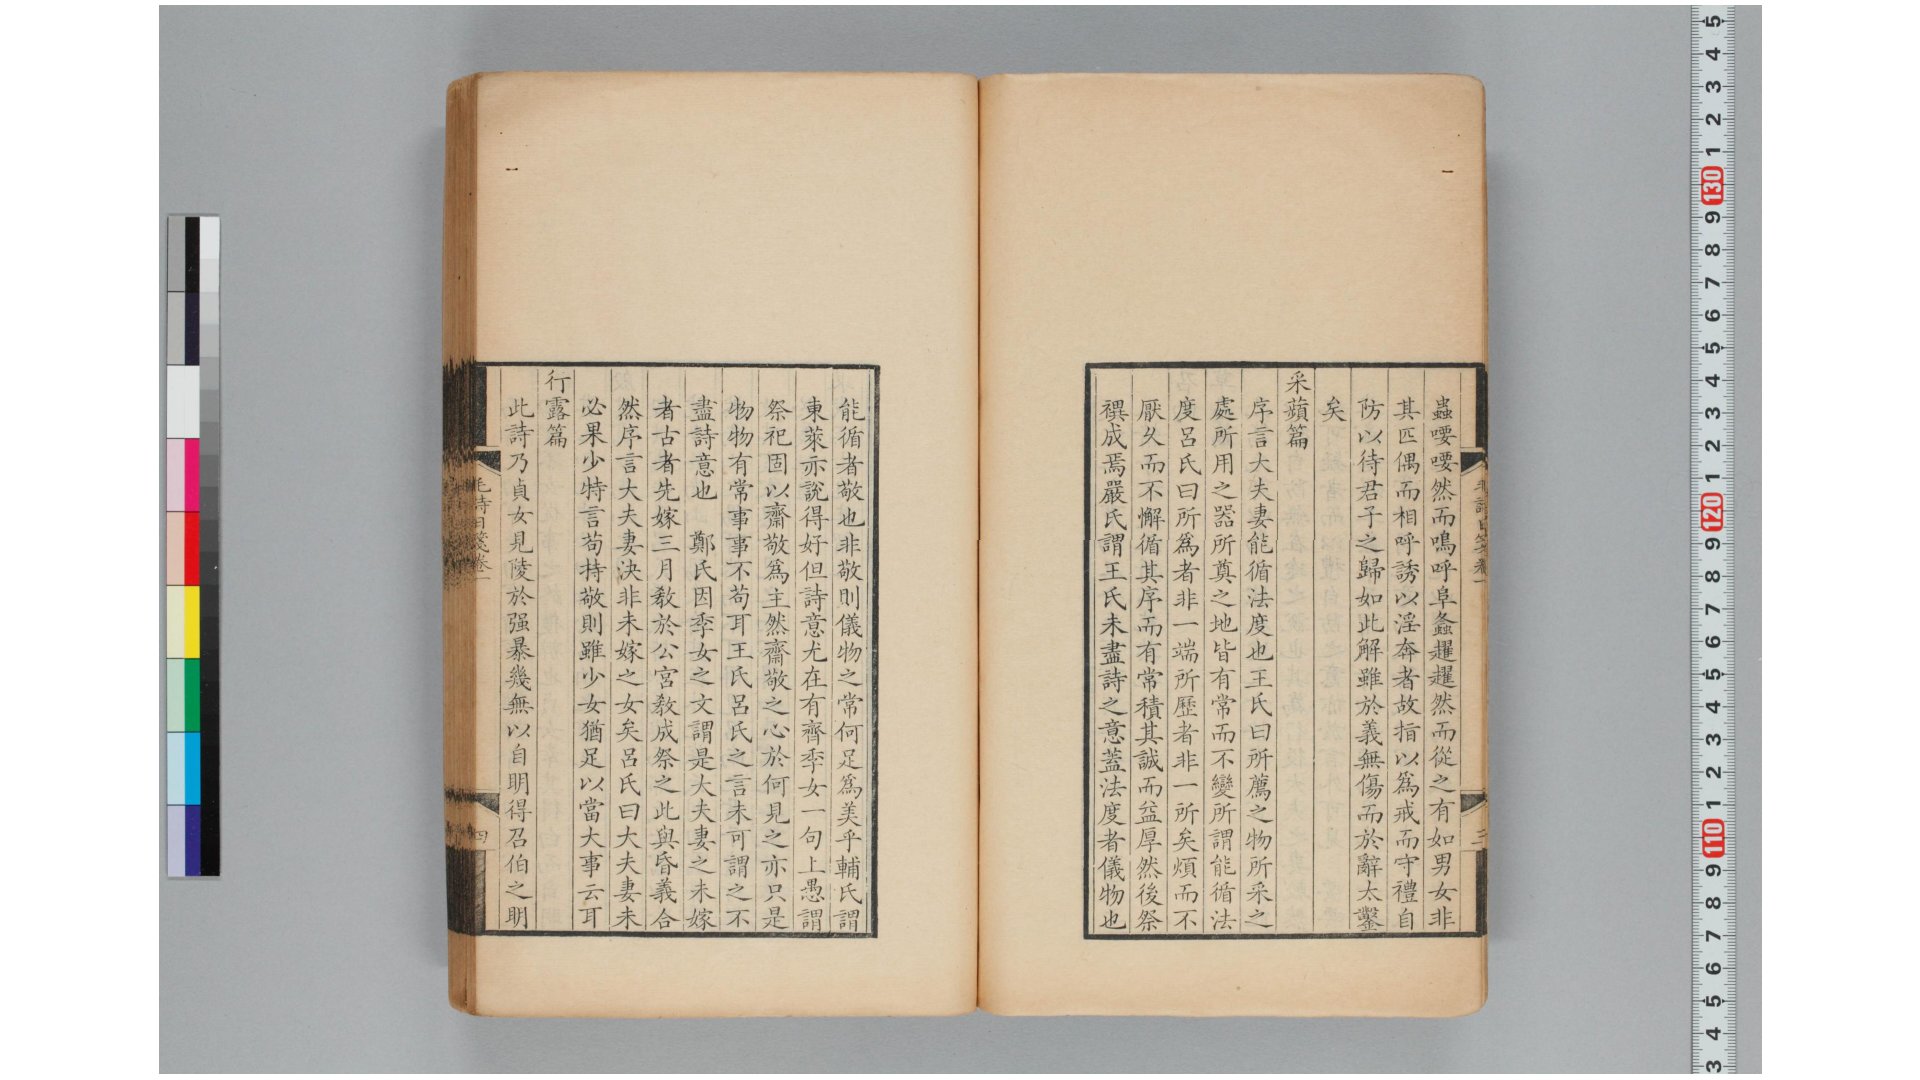 蟲喓喓然而鳴呼阜螽趯趯然而從之有如男女非
其匹偶而相呼誘以淫奔者故指以為戒而守禮自
防以待君子之歸如此解雖於義無傷而於辭太鑿
矣
采蘋篇
序言大夫妻能循法度也王氏曰所薦之物所采之
處所用之器所奠之地皆有常而不變所謂能循法
度呂氏曰所為者非一端所歷者非一所矣煩而不
厭久而不懈循其序而有常積其誠而益厚然後祭
禩成焉嚴氏謂王氏未盡詩之意蓋法度者儀物也
毛詩日箋卷一
三
能循者敬也非敬則儀物之常何足為美乎輔氏謂
東萊亦說得好但詩意尤在有齊季女一句上愚謂
祭祀固以齋敬為主然齋敬之心於何見之亦只是
物物有常事事不苟耳王氏呂氏之言未可謂之不
盡詩意也 鄭氏因季女之文謂是大夫妻之未嫁
者古者先嫁三月教於公宮教成祭之此與昏義合
然序言大夫妻決非未嫁之女矣呂氏曰大夫妻未
必果少特言苟持敬則雖少女猶足以當大事云耳
行露篇
此詩乃貞女見陵於强暴幾無以自明得召伯之明
毛詩日箋卷一
四
5
4
3
2
1
130
9
8
7
6
5
4
3
2
1
120
9
8
7
6
5
4
3
2
1
110
9
8
7
6
5
4
3